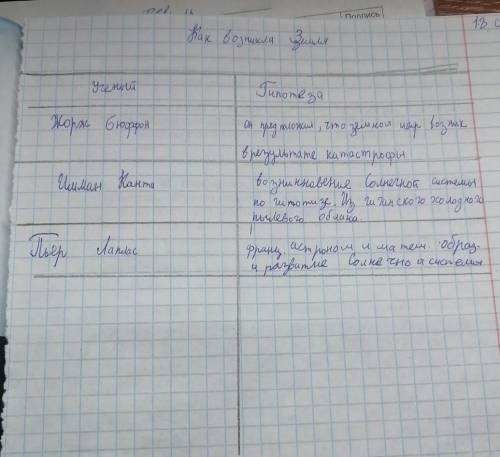 Подпись
Как возникла Земля
Учёный
Гипотеза
Жорж Бюффон
он предположил, что земной шар возник
в результате катастрофы
Канта
возникновение Солнечной системы
по гипотизе. Из гиганского холодного
пылевого облака
Пьер Лаплас
франц. астроном и матем. образ.
и развитие Солнечной системы